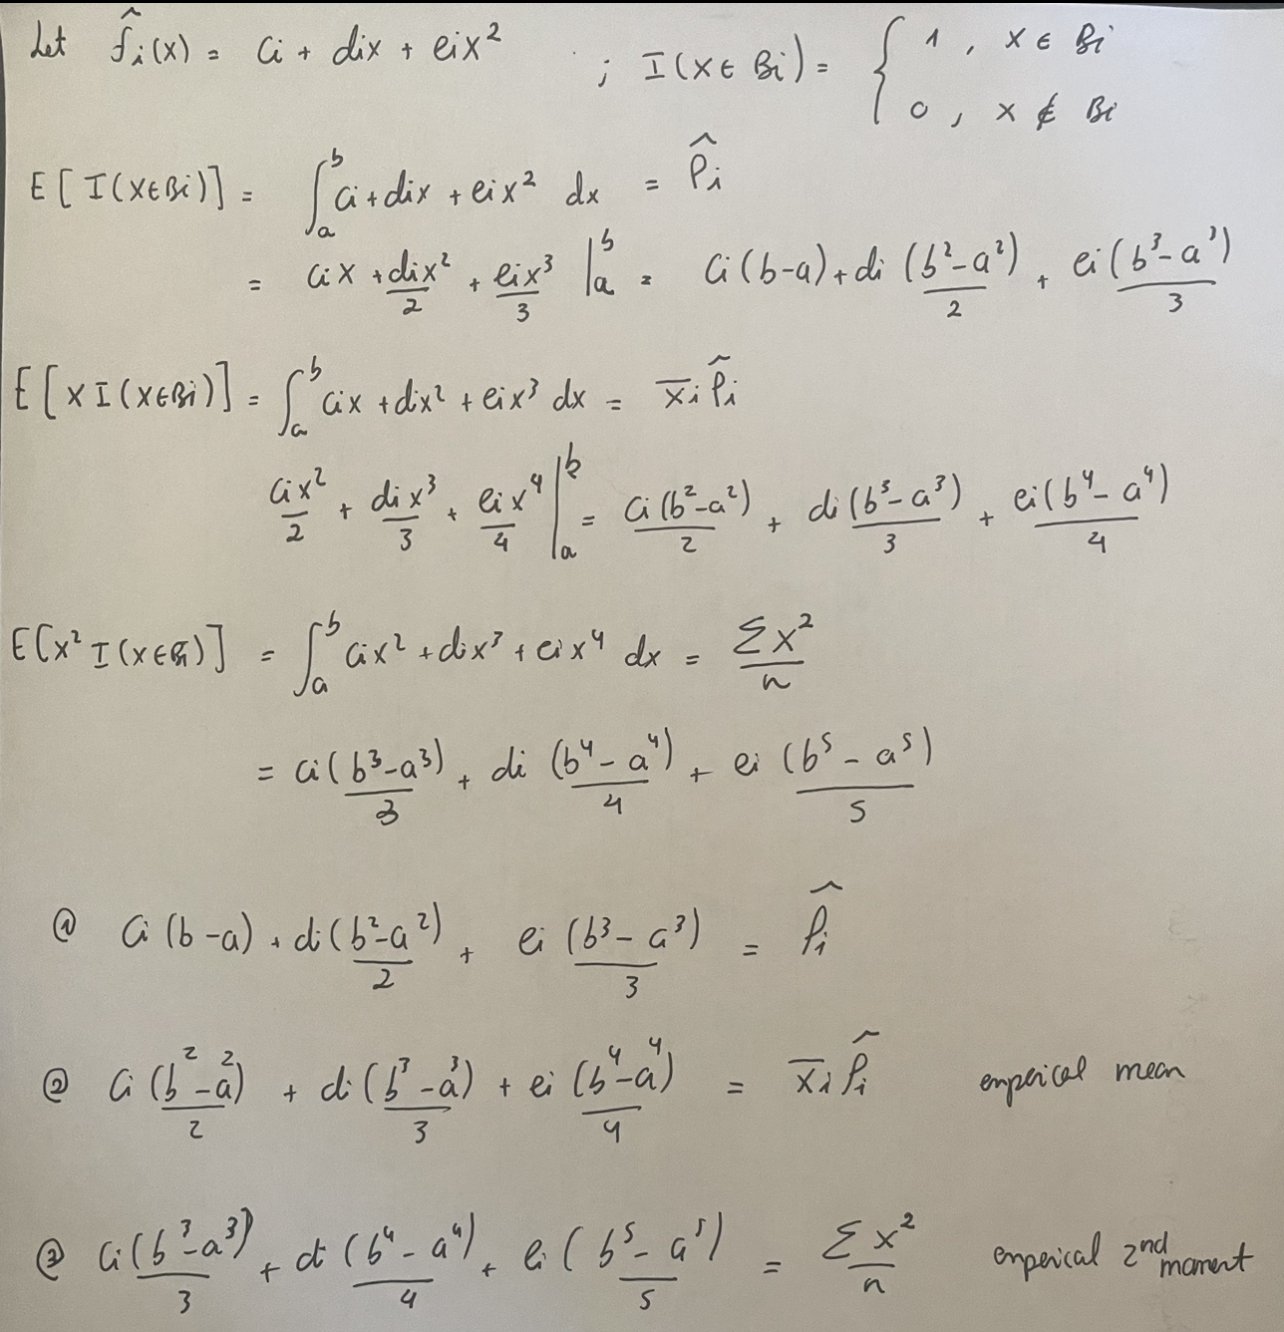 Let f̂i(x) = ci + dix + eix² ; I(x ∈ Bi) = { 1 , x ∈ Bi
0 , x ∉ Bi
E[I(x∈Bi)] = ∫_a^b ci + dix + eix² dx = P̂i
= cix + dix²/2 + eix³/3 |_a^b = ci(b-a) + di (b²-a²)/2 + ei(b³-a³)/3
E[x I(x∈Bi)] = ∫_a^b cix + dix² + eix³ dx = x̄i P̂i
cix²/2 + dix³/3 + eix⁴/4 |_a^b = ci(b²-a²)/2 + di(b³-a³)/3 + ei(b⁴-a⁴)/4
E[x² I(x∈Bi)] = ∫_a^b cix² + dix³ + eix⁴ dx = Σx²/n
= ci(b³-a³)/3 + di (b⁴-a⁴)/4 + ei (b⁵-a⁵)/5
① ci (b-a) + di(b²-a²)/2 + ei (b³-a³)/3 = P̂i
② ci (b²-a²)/2 + di(b³-a³)/3 + ei (b⁴-a⁴)/4 = x̄i P̂i emperical mean
③ ci(b³-a³)/3 + di (b⁴-a⁴)/4 + ei (b⁵-a⁵)/5 = Σx²/n emperical 2nd moment